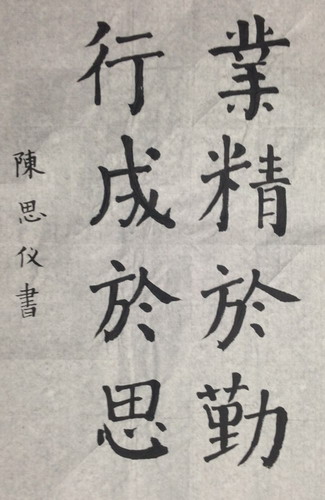 業精於勤
行成於思
陳思仪書